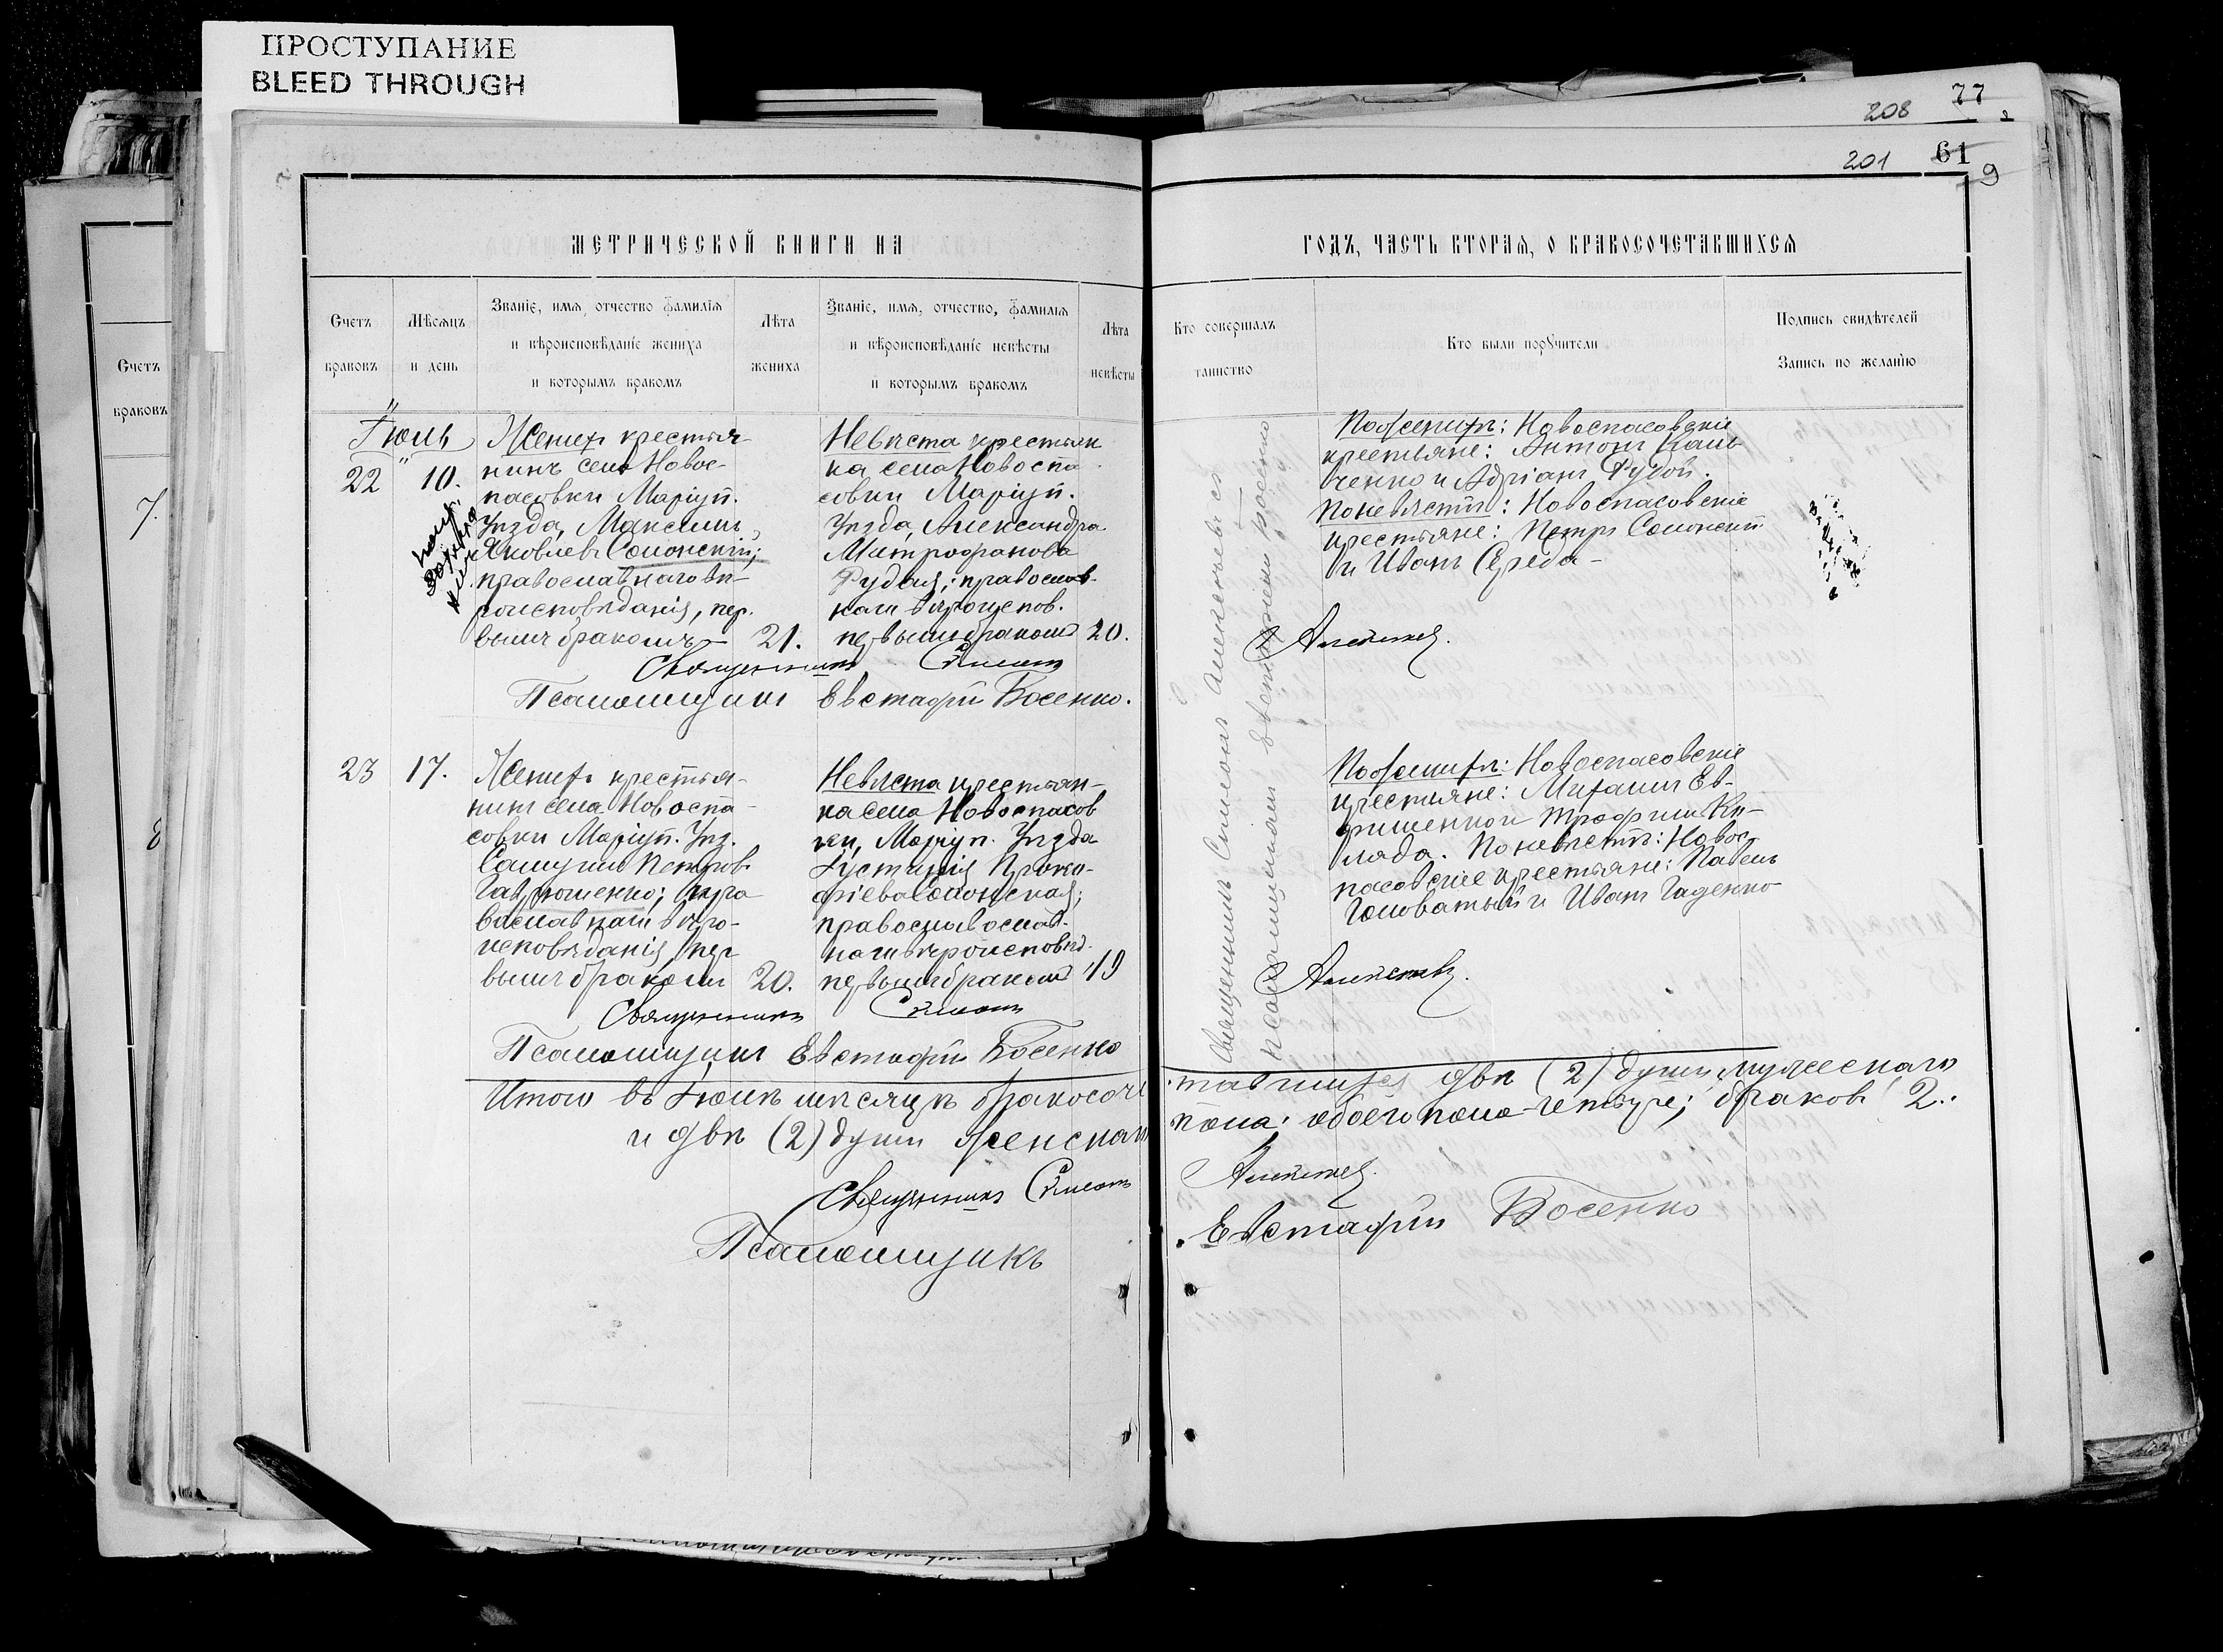 ПРОСТУПАНИЕ
BLEED THROUGH
208 77
201 61
9
МЕТРИЧЕСКОЙ КНИГИ НА
ГОДЪ, ЧАСТЬ ВТОРАЯ, О БРАКОСОЧЕТАВШИХСЯ
Счетъ
браковъ
Мѣсяцъ
и день
Званіе, имя, отчество фамилія
и вѣроисповѣданіе жениха
и которымъ бракомъ
Лѣта
жениха
Званіе, имя, отчество, фамилія
и вѣроисповѣданіе невѣсты
и которымъ бракомъ
Лѣта
невѣсты
Кто совершалъ
таинство
Кто были поручители
Подпись свидѣтелей
Запись по желанію
Счетъ
браковъ
7.
8
Іюль
22 10.
Женихъ крестья-
нинъ села Новос-
пасовки Маріуп.
Уѣзда, Максимъ
Яковлевъ Солонскій;
православнаго вѣ-
роисповѣданія, пер-
вымъ бракомъ 21.
Невѣста крестьян
ка села Новоспа-
совки Маріуп.
Уѣзда, Александра
Митрофанова
Рудая; православ-
наго вѣроиспов.
первымъ бракомъ 20.
Священникъ Симеонъ
Псаломщикъ Евстафій Босенко.
По женихѣ: Новоспасовскіе
крестьяне: Антонъ
ченко и Адріанъ Рудой.
По невѣстѣ: Новоспасовскіе
крестьяне: Петръ Солонскій
и Иванъ Середа-
Алексѣевъ.
Священникъ Симеонъ Алексѣевъ съ
псаломщикомъ Евстафіемъ Босенко
23 17.
Женихъ крестья-
нинъ села Новоспа-
совки Маріуп. Уѣз.
Самуилъ Петров.
Гаврюшенко; пра-
вославнаго вѣро-
исповѣданія, пер
вымъ бракомъ 20.
Невѣста крестьян-
ка села Новоспасов
ки, Маріуп. Уѣзда
Іустинія Проко-
фіева Солонская;
православ-
наго вѣроисповѣд.
первымъ бракомъ 19
Священникъ Симеонъ
Псаломщикъ Евстафій Босенко
По женихѣ: Новоспасовскіе
крестьяне: Михаилъ Ев-
Трофимъ Ко-
ляда. По невѣстѣ: Новос-
пасовскіе крестьяне: Павелъ
Головатый и Иванъ Гаденко
Алексѣевъ.
Итого въ Іюлѣ мѣсяцѣ бракосоче-
тавшихся двѣ (2) души мужескаго
и двѣ (2) души женскаго
пола; обоего пола четыре; браковъ 2.
Священникъ Симеонъ
Алексѣевъ.
Псаломщикъ
Евстафій Босенко